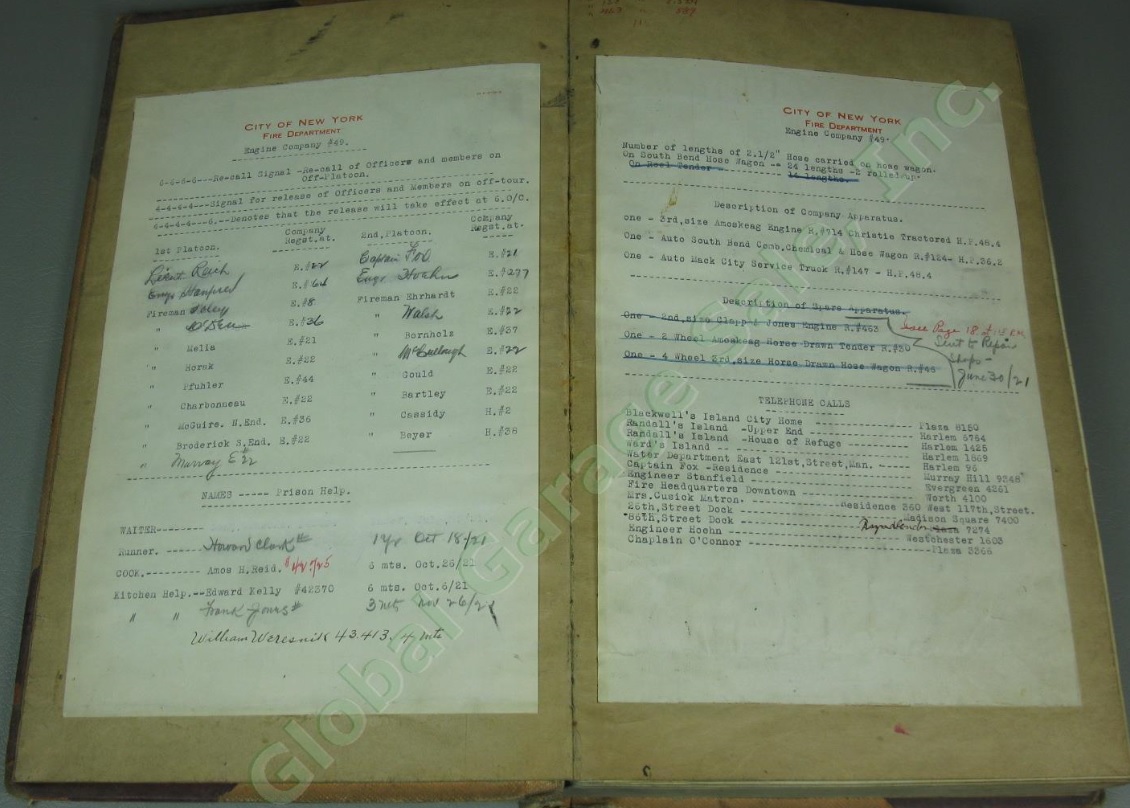 CITY OF NEW YORK
FIRE DEPARTMENT
Engine Company #49.
6-6-6-6---Re-call Signal -Re-call of Officers and members on
Off-Platoon.
4-4-4-4---Signal for release of Officers and Members on off-tour.
4-4-4-4---6.--Denotes that the release will take effect at 6.O/C.
1st Platoon. Company Regst.at. 2nd.Platoon. Company Regst.at.
Lieut Rech E.#22 Captain Fox E.#21
Engr Stanfield E.#64 Engr. Hoehn E.#277
Fireman Foley E.#8 Fireman Ehrhardt E.#22
" E.#36 " Walsh E.#22
" Melia E.#21 " Bornholz E.#37
" Horak E.#22 " McCullough E.#22
" Pfuhler E.#44 " Gould E.#22
" Charbonneau E.#22 " Bartley E.#22
" McGuire. H.End. E.#36 " Cassidy H.#2
" Broderick S.End. E.#22 " Boyer H.#38
" Murray E 22
NAMES ----- Prison Help.
WAITER-------
Runner. ----- Clark # 1 yr Oct 18-21
COOK.--------- Amos H.Reid. 6 mts. Oct.26/21
Kitchen Help.--Edward Kelly #42370 6 mts. Oct.6/21
" " Frank # 3 mts Nov 26/21
William Weresnik 43.413. 4 mts
CITY OF NEW YORK
FIRE DEPARTMENT
Engine Company #49.
Number of lengths of 2.1/2" Hose carried on Hose wagon.
On South Bend Hose Wagon -- 24 lengths -2 rolled up.
On Reel Tender 14 lengths.
Description of Company Apparatus.
one - 3rd.size Amoskeag Engine R.#714 Christie Tractored H.P.48.4
One - Auto South Bend Comb.Chemical & Hose Wagon R.#124- H.P.36.2
One - Auto Mack City Service Truck R.#147 - H.P.48.4
Description of Spare Apparatus.
One - 2nd.size Clapp & Jones Engine R.#463
One - 2 Wheel Amoskeag Horse Drawn Tender R.#30
One - 4 Wheel 3rd.size Horse Drawn Hose Wagon R.#46
See Page 18
Sent to Repair
Shops -
June 30/21
TELEPHONE CALLS
Blackwell's Island City Home ------------- Plaza 8150
Randall's Island -Upper End ------------- Harlem 6784
Randall's Island -House of Refuge -------- Harlem 1425
Ward's Island -- ------------------------- Harlem 1869
Water Department East 121st,Street,Man. ----- Harlem 96
Captain Fox -Residence ---------------- Murray Hill 9348
Engineer Stanfield ------------------- Evergreen 4261
Fire Headquarters Downtown ------------- Worth 4100
Mrs.Cusick Matron. ------------Residence 360 West 117th,Street.
26th,Street Dock ---------------- Madison Square 7400
86th,Street Dock ---------------- 7274
Engineer Hoehn ------------------ Westchester 1603
Chaplain O'Connor --------------------- Plaza 3366
Global Garage Sale, Inc.